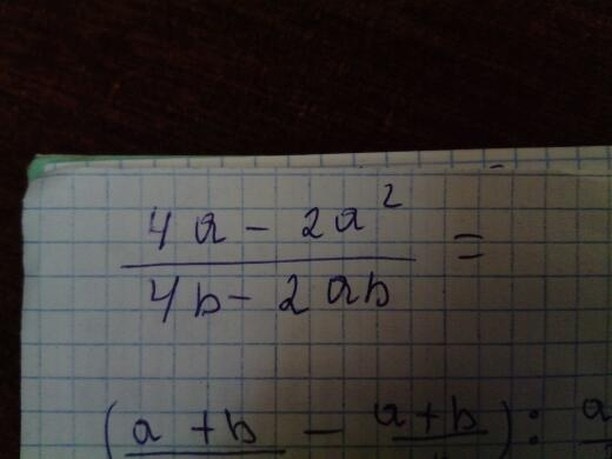 4a - 2a² =
4b - 2ab
(a + b - a + b) : a